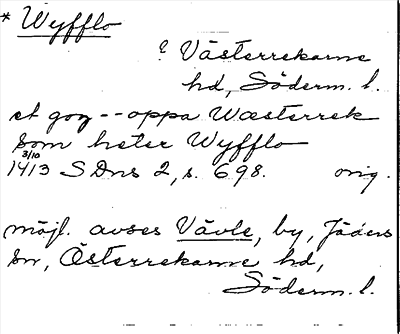 * Wyfflo
? Västerrekarne
hd, Söderm. l.
et goz -- oppa Wæsterrek
som heter Wyfflo
3/10
1413 SDns 2, s. 698. orig.
möjl. avses Vävle, by, Jäders
sn, Österrekarne hd,
Söderm. l.